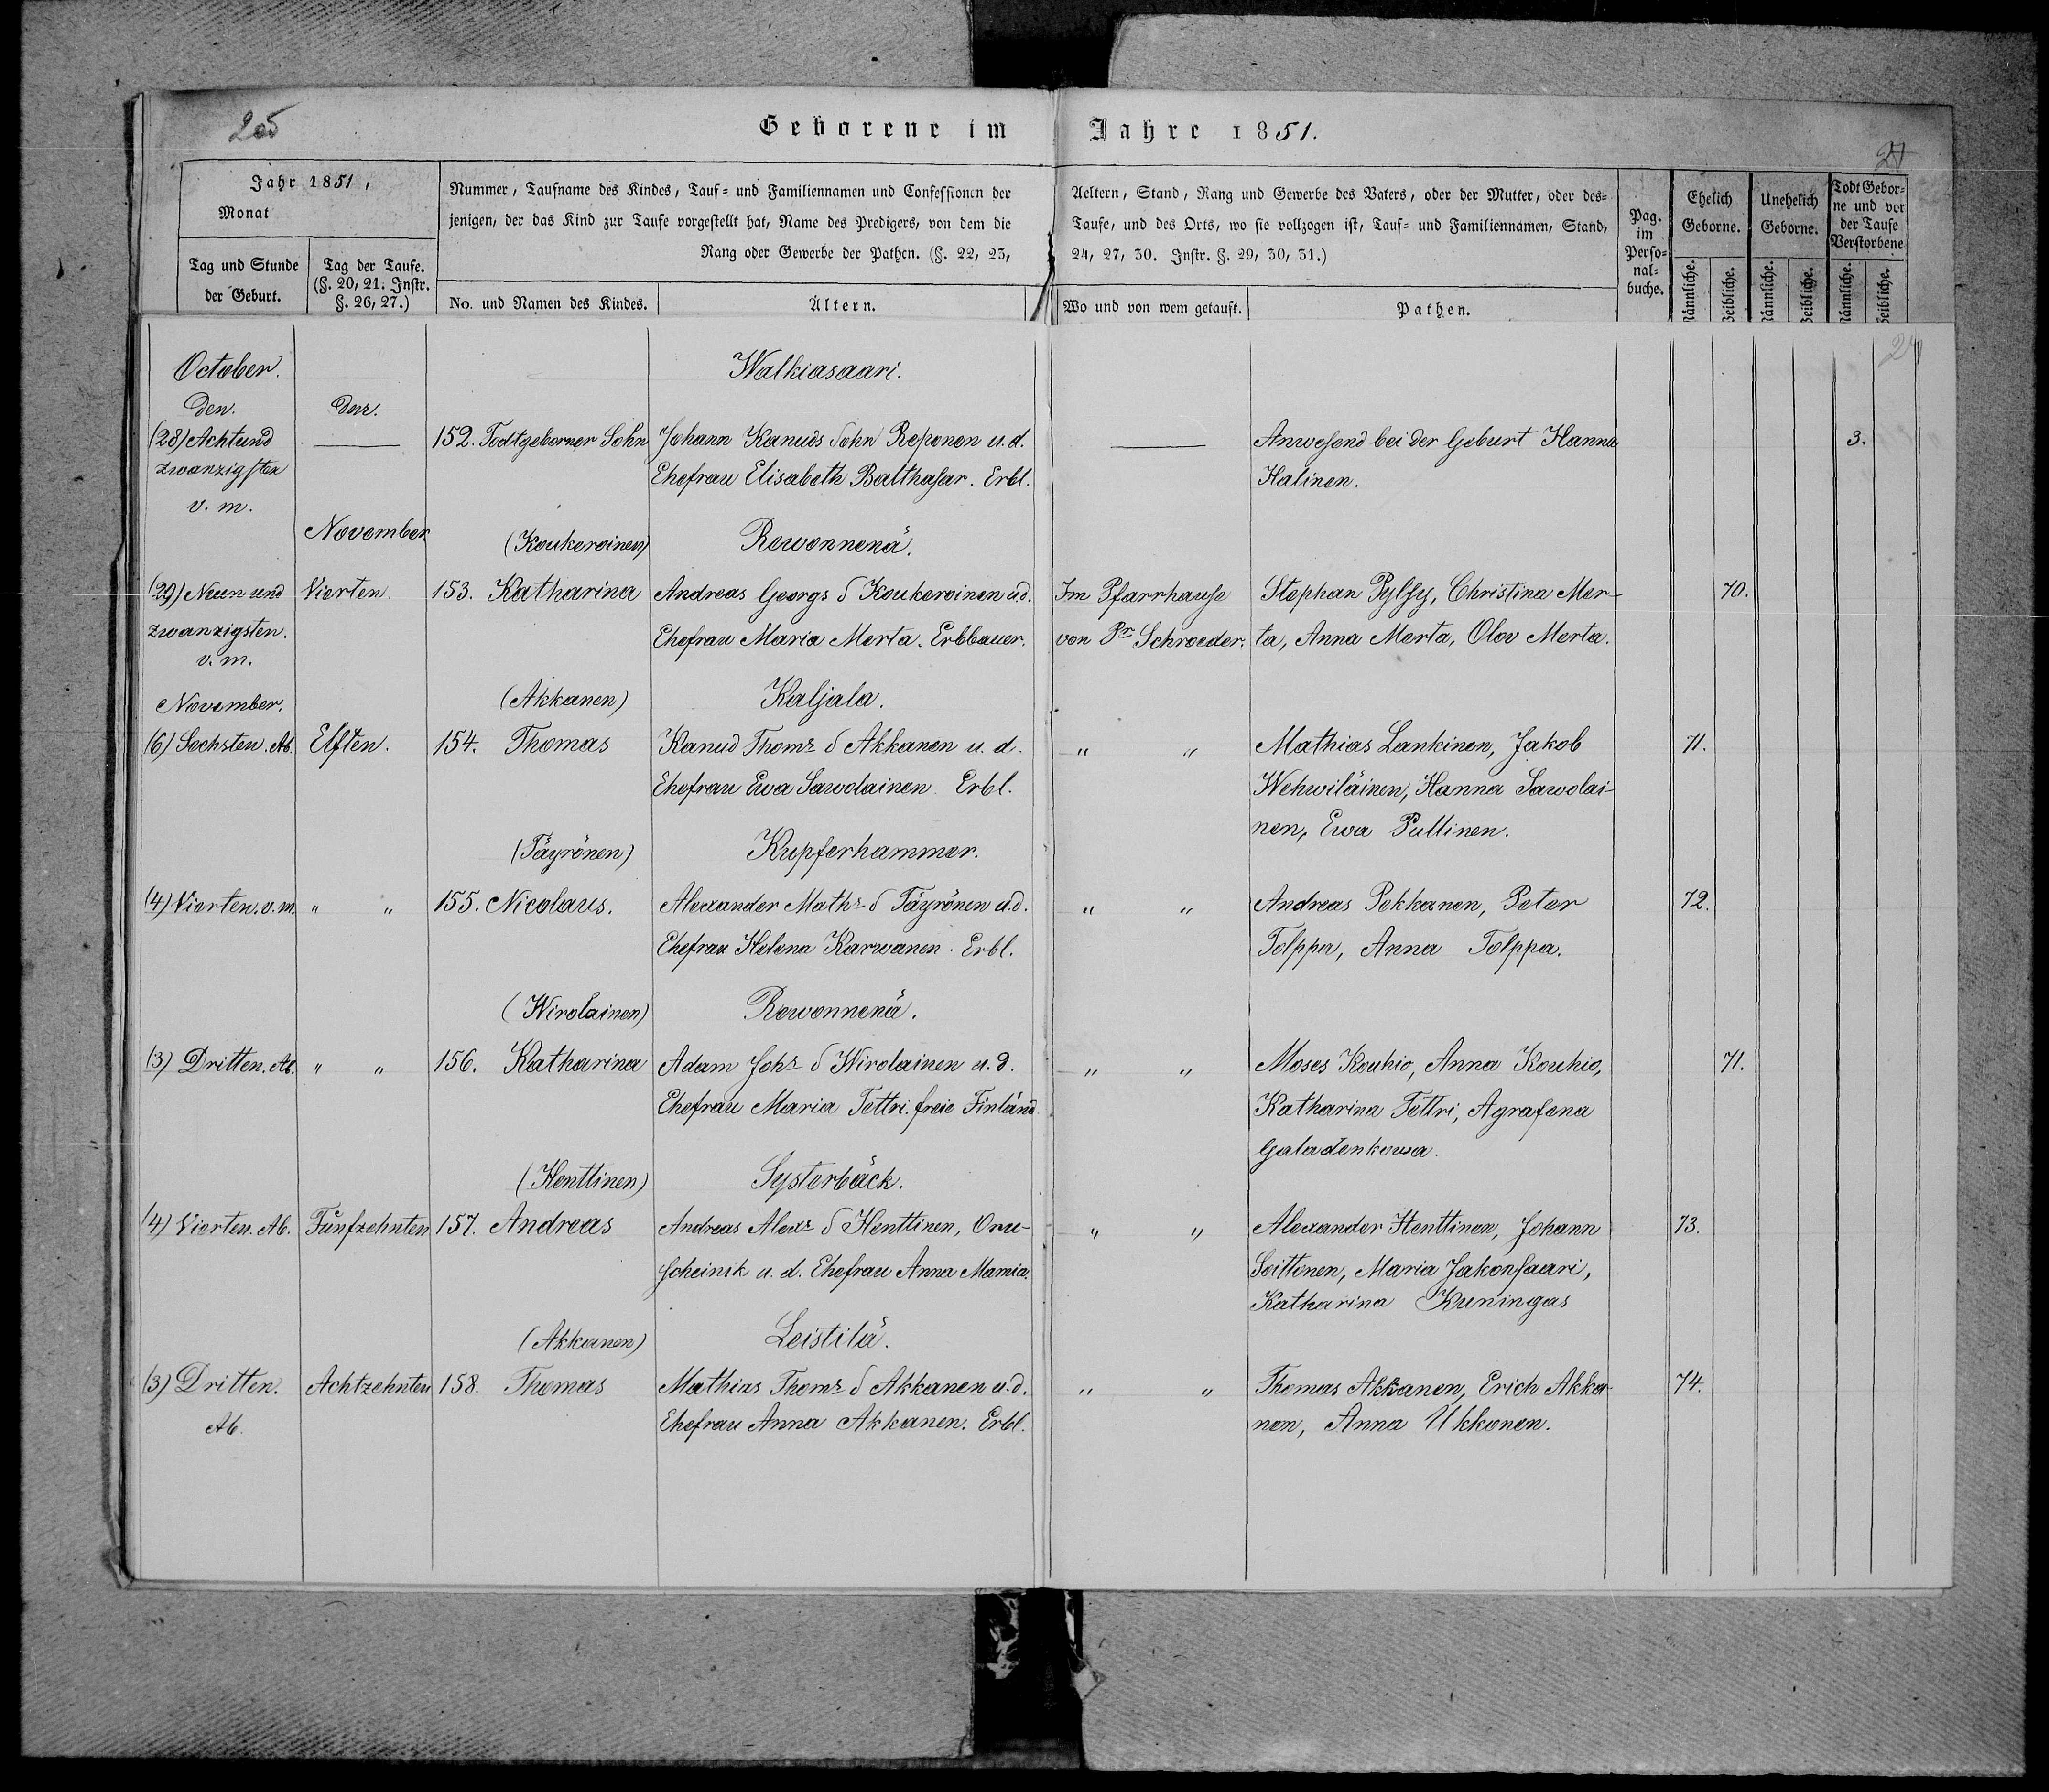 Geborene im Jahre 1851.
Jahr 1851,
Monat
Tag und Stunde der Geburt.
Tag der Taufe. (§. 20, 21. Instr. §. 26, 27.)
Nummer, Taufname des Kindes, Tauf- und Familiennamen und Confessionen der
jenigen, der das Kind zur Taufe vorgestellt hat, Name des Predigers, von dem die
Rang oder Gewerbe der Pathen. (§. 22, 23,
No. und Namen des Kindes.
Ältern.
Aeltern, Stand, Rang und Gewerbe des Vaters, oder der Mutter, oder des-
Taufe, und des Orts, wo sie vollzogen ist, Tauf- und Familiennamen, Stand,
24, 27, 30. Instr. §. 29, 30, 31.)
Wo und von wem getauft.
Pathen.
Pag. im Perso-nal-buche.
Ehelich Geborne.
Unehelich Geborne.
Todt Gebor-ne und vor der Taufe Verstorbene
Männliche. Weibliche. Männliche. Weibliche. Männliche. Weibliche.
October.
Walkiasaari.
den.
den.
(28) Achtund
zwanzigsten
v. m.
152. Todtgeborner Sohn
Johann Kanuds Sohn Reponen u. d.
Ehefrau Elisabeth Balthasar. Erbl.
Anwesend bei der Geburt Hanna
Halinen.
3.
November
(Koukeroinen)
Rewonnenä.
(29) Neun und
zwanzigsten.
v. m.
Vierten.
153. Katharina
Andreas Georgs S Koukeroinen u d.
Ehefrau Maria Merta. Erbbauer.
Im Pfarrhause
von Pr Schroeder.
Stephan Pylsy, Christina Mer-
ta, Anna Merta, Olov Merta.
70.
November.
(Akkanen)
Kaljala.
(6) Sechsten. Ab.
Elften.
154. Thomas
Kanud Thoms S Akkanen u. d.
Ehefrau Ewa Sawolainen. Erbl.
" "
Mathias Lankinen, Jakob
Wehwiläinen, Hanna Sawolai-
nen, Ewa Pullinen.
71.
(Täyrönen)
Kupferhammer.
(4) Vierten. v. m.
" "
155. Nicolaus.
Alexander Maths S Täyrönen u. d.
Ehefrau Helena Karwanen. Erbl.
" "
Andreas Pekkanen, Peter
Tolppa, Anna Tolppa.
72.
(Wirolainen)
Rewonnenä.
(3) Dritten. Ab.
" "
156. Katharina
Adam Johs S Wirolainen u. d.
Ehefrau Maria Tettri. freie Finländ
" "
Moses Kouhio, Anna Kouhio,
Katharina Tettri, Agrafena
Galadenkowa.
71.
(Henttinen)
Systerbäck.
(4) Vierten. Ab.
Fünfzehnten
157. Andreas
Andreas Alexs S Henttinen, Oru-
scheinik u. d. Ehefrau Anna Mamia.
" "
Alexander Henttinen, Johann
Soittonen, Maria Jakonsaari,
Katharina Kuningas
73.
(Akkanen)
Leistilä.
(3) Dritten.
Ab.
Achtzehnten
158. Thomas
Mathias Thoms S Akkanen u. d.
Ehefrau Anna Akkanen. Erbl.
" "
Thomas Akkanen, Erich Akka-
nen, Anna Ukkonen.
74.